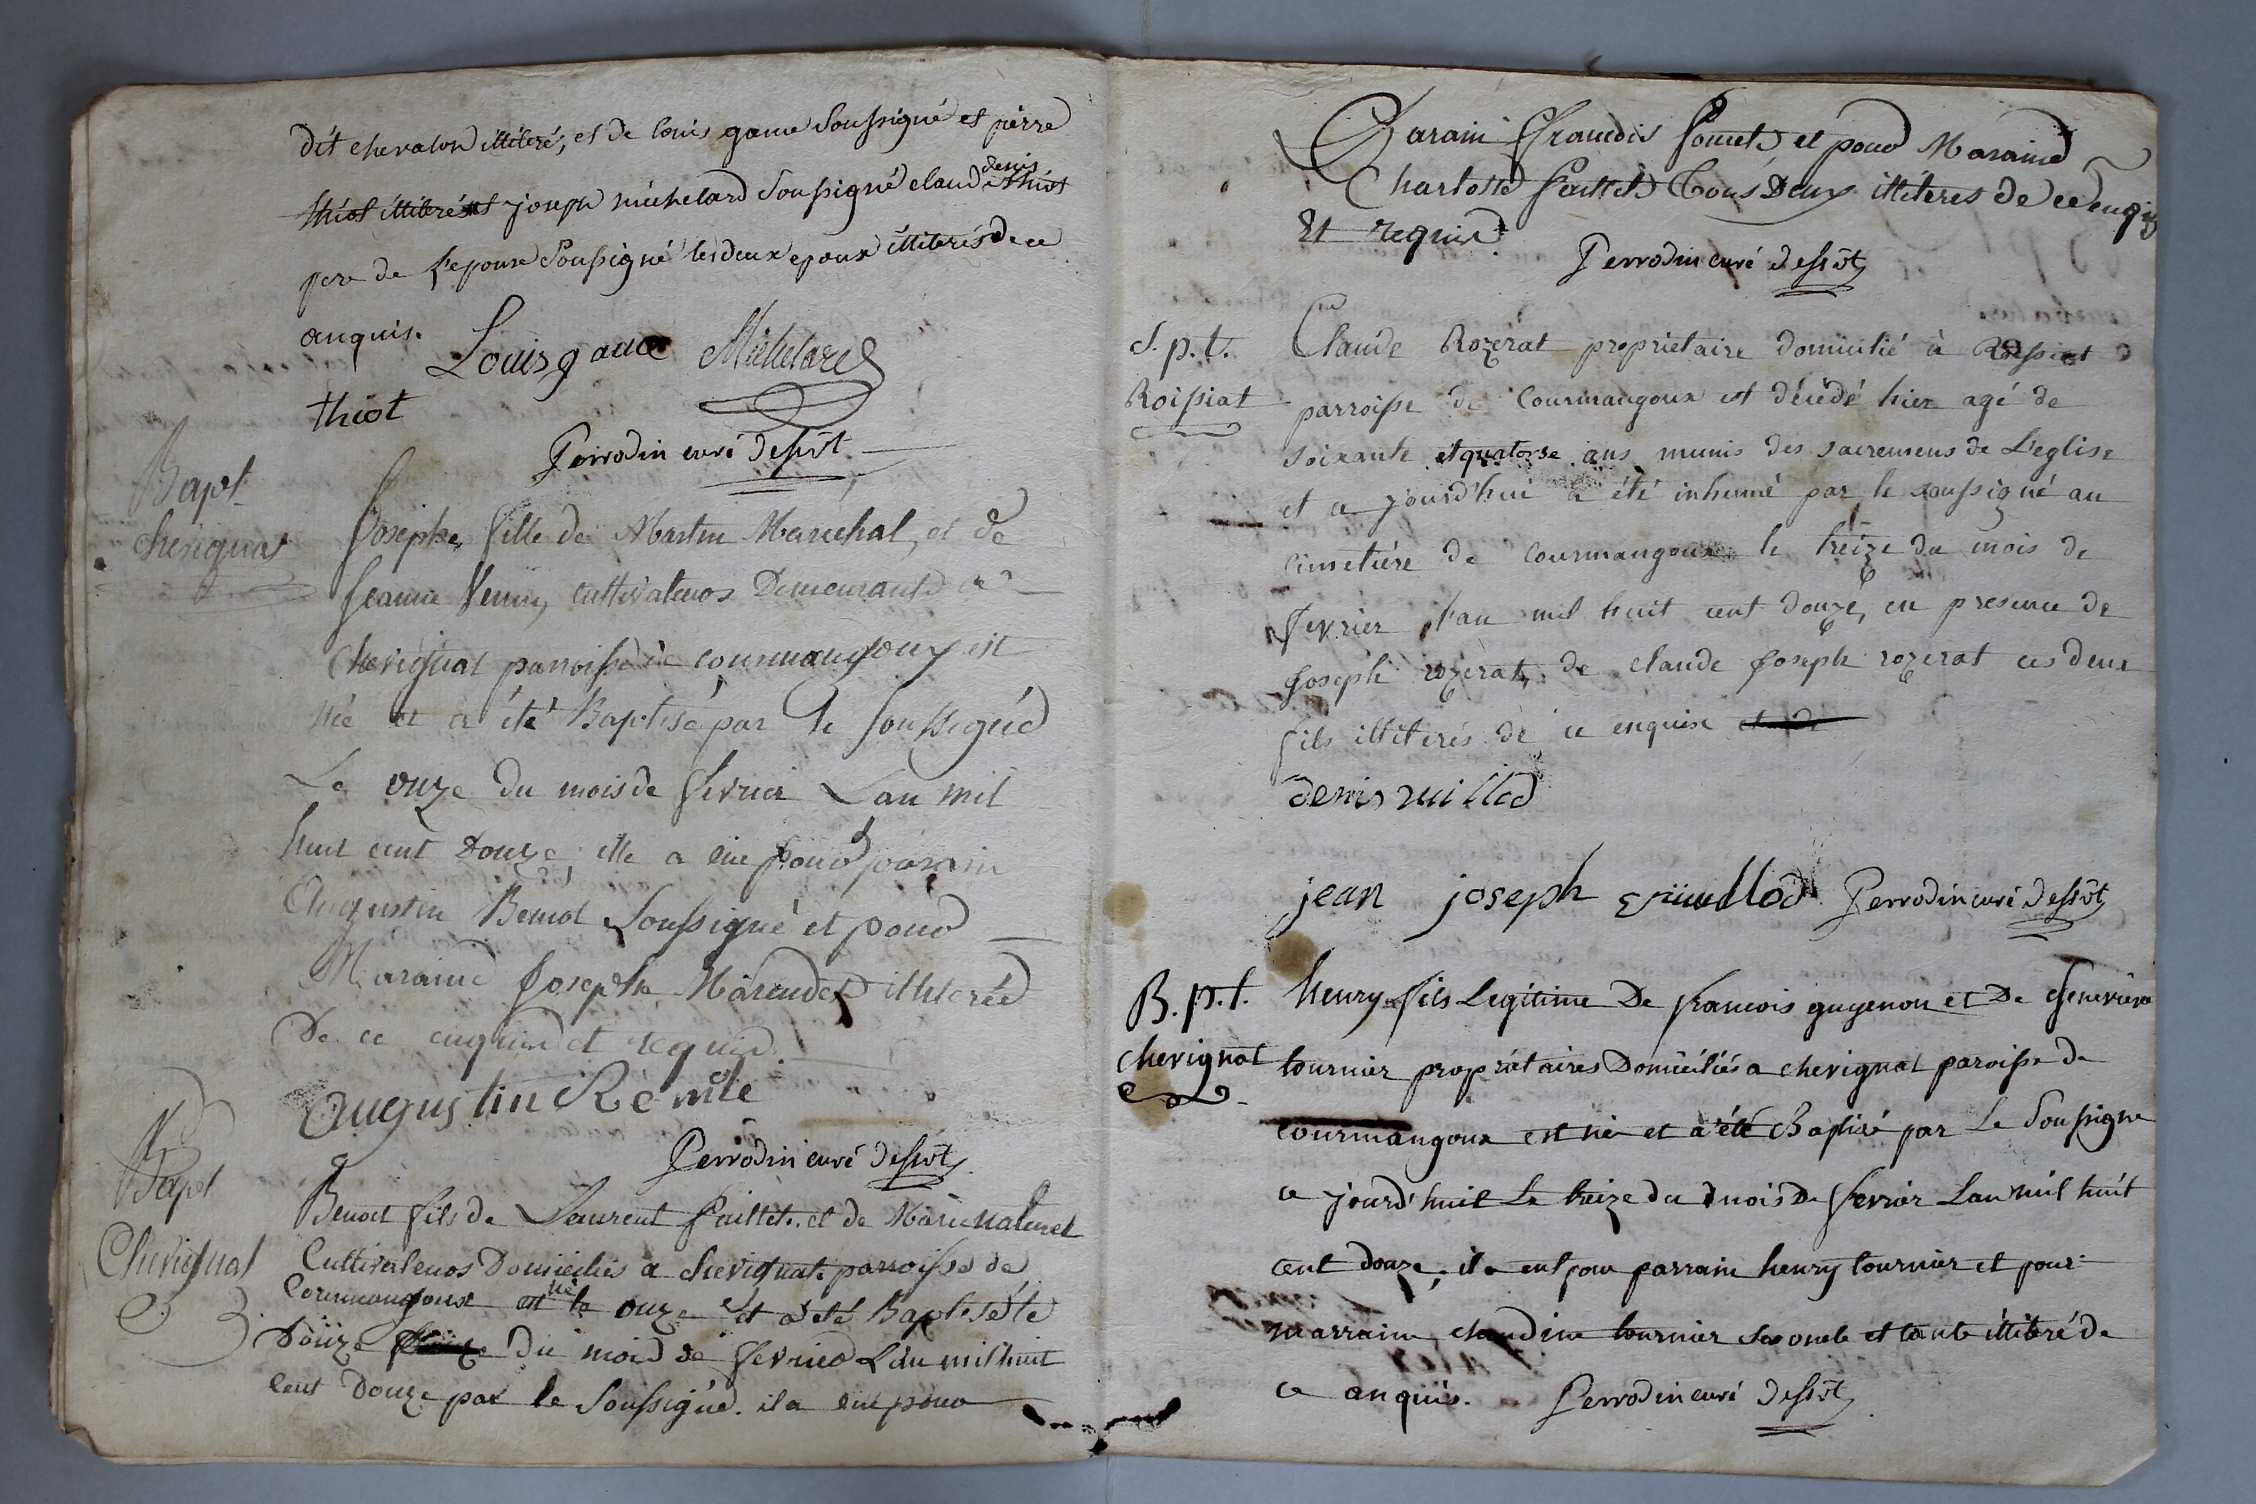 dit chevalon illiteré, et de louis gauce soussigné et pierre
thiot illiterés et joseph michelard soussigné claude denis thiot
pere de l'epouse soussigné les deux epoux illiterés de ce
anquis.
Louis gauce Michelard
thiot
Perrodin curé dessvt
Bapt
chevignat
Josephe, fille de Martin Marechal, et de
Jeanne cultivateurs Demeurants a
Chevignat parroisse de courmangoux est
née et a été Baptisé par le soussigné
Le onze du mois de fevrier Lan mil
huit cent Douze; elle a eu pour parain
Augustin Benoit soussigné et pour
Maraine Josephe illiterée
De ce enquise et requise.
augustin
Perrodin curé dessvt
Bapt
Chevignat
Benoit fils de Laurent Paillet. et de Marie
Cultivateurs Domiciliés a chevignat parroisse de
Courmangoux est né le onze et a été Baptisé le
Douze du mois de fevrier L'an mil huit
cent Douze par le soussigné. il a eu pour
Parain francois et pour Maraine
Charlotte Paillet Tous Deux illiteres de ce enquis
Et requis.
Perrodin curé dessvt
S. p. t.
Roissiat
Claude Rozerat proprietaire domicilié à Roissiat
parroisse de Courmangoux est décédé hier agé de
soixante et quatorse ans munis des sacremens de L'eglise
et ce jourd'hui a été inhumé par le soussigné au
cimetiére de courmangoux le treize du mois de
fevrier l'an mil huit cent douze, en presence de
joseph rozerat, de claude joseph rozerat ces deux
fils illiterés de ce enquis
denis vuillod
jean joseph Perrodin curé dessvt
B. p. t.
chevignat
henry fils Legitime De francois guyenon et De Genevieve
tournier propriétaires Domiciliés a chevignat paroisse de
courmangoux est né et a été Baptisé par Le Soussigne
ce jourd'huit Le treize du mois De fevrier Lan mil huit
cent douze, il a eut pour parrain henry tournier et pour
marraine claudine tournier ses oncle et tante illiteré de
ce anquis. Perrodin curé dessvt